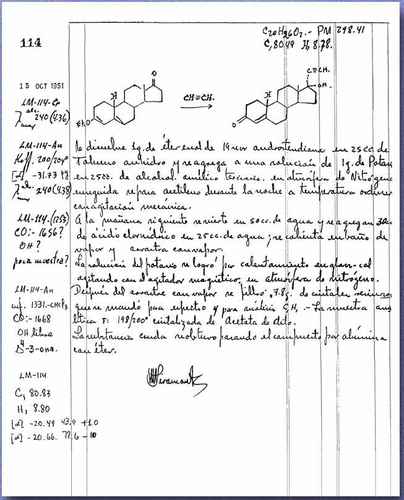 C20H26O2.- PM 298.41
C, 80.49 H, 8.78.
114
15 OCT 1951
LM-114-Co
240 (4.36)
LM-114-An
200/204°
[α] -31.73
240 (4.38)
LM-114-(1258)
CO:- 1656?
OH?
poca muestra?
LM-114-An
1331-CHCl3
CO:- 1668
OH libre
Δ4-3-ona.
LM-114
C, 80.83
H, 8.80
[α] -20.49
[α] -20.66
EtO
O
CH≡CH.
C≡CH.
OH.
O
Se disuelve 1g. de éter enol de 19 nor androstendiona en 25 cc de
Tolueno anhidro y se agrega a una solución de 1g. de Potasio
en 25 cc. de alcohol amílico terciario. en atmósfera de Nitrógeno
enseguida se pasa acetileno durante la noche a temperatura ordinaria
con agitación mecánica.
A la mañana siguiente se vierte en 50 cc. de agua y se agregan 30 cc
de ácido clorhídrico en 25 cc. de agua; se calienta en baño de
vapor y se arrastra con vapor
La solución del potasio se logró por calentamiento en glas-col
agitando con el agitador magnético, en atmósfera de nitrógeno.
Después del arrastre con vapor se filtró .78 g. de cristales
que se mandó para espectro y para análisis C, H, - La muestra analítica
f: 198/200° cristalizada de Acetato de etilo.
La substancia cruda se obtuvo pasando el compuesto por alúmina
con éter.
Miramontes